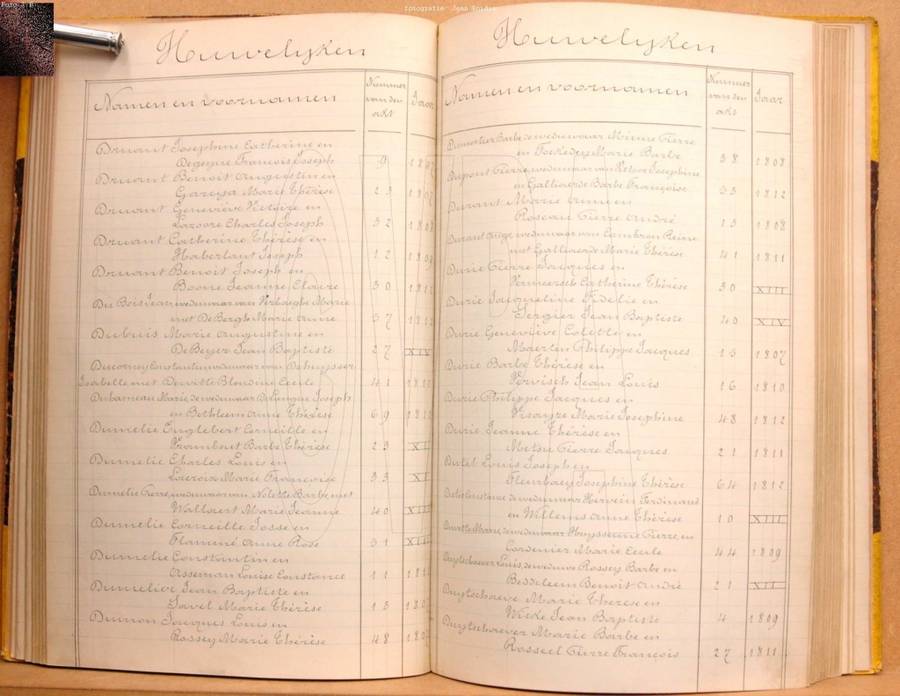 fotografie: Jean
Huwelijken
Namen en voornamen
Nummer van den akt
Jaar
Druant Josephine Catherine en
Degezee François Joseph 9 180
Druant Benoit Augustin en
Garuya Marie Thérèse 23 180
Druant Geneviève Victoire en
Lazoore Charles Joseph 32 180
Druant Catherine Thérèse en
Haberlant Joseph 12 180
Druant Benoit Joseph en
Boone Jeanne Claire 30 181
Du Bois Jean weduwaar van Verhaeghe Marie
met De Bergh Marie Anne 37 181
Dubuis Marie Augustine en
De Beyer Jean Baptiste 27 XIV
Isabelle met Dewitte Blondine Cecile 41 181
Duhameau Marie deweduwaar
en Bethleem Anne Thérèse 69 181
Dumelie Englebert Corneille en
Brombaut Barbe Thérèse 23 XI
Dumelie Charles Louis en
Lacroix Marie Françoise 33 XI
Dumelie Pierre, weduwaar van Nolette Barbe met
Wallaert Marie Jeanne 40 XIII
Dumelie Corneille Josse en
Flamené Anne Rose 31 XIII
Dumelie Constantin en
Asseman Louise Constance 11 181
Dumelie Jean Baptiste en
Javel Marie Thérèse 13 180
Dumon Jacques Louis en
Rossey Marie Thérèse 48 180
Huwelijken
Namen en voornamen
Nummer van den akt
Jaar
Dumortier Barbe deweduwaar Minne Pierre
en Marie Barbe 38 1808
Dupont Pierre, weduwaar van Josephine
en Galliaerde Barbe Françoise 33 1812
Durant Marie Anne en
Roseau Pierre André 13 1808
Durant weduwaar van Lambran Reine
met Galliaerde Marie Thérèse 41 1811
Durie Pierre Jacques en
Vermeersch Catherine Thérèse 30 XIII
Durie Jacqueline Fidelie en
Sergier Jean Baptiste 40 XIV
Durie Geneviève Colette en
Maerten Philippe Jacques 13 1807
Durie Barbe Thérèse en
Vervisch Jean Louis 16 1810
Durie Philippe Jacques en
Vrayze Marie Josephine 48 1812
Durie Jeanne Thérèse en
Metsu Pierre Jacques 21 1811
Dutel Louis Joseph en
Fleurbaey Josephine Thérèse 64 1812
Ferdinand
en Willems Anne Thérèse 10 XIII
Duvette Marie, deweduwaar Huyssenne Pierre, en
Cordenier Marie Cecile 44 1809
Louis, deweduwe Rossey Barbe en
Bedeleem Benoit André 21 XII
Duytschaeve Marie Therese en
Wicke Jean Baptiste 4 1809
Duytschaever Marie Barbe en
Rosseel Pierre François 27 1811